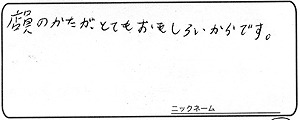 顔のかたが、とてもおもしろいからです。
ニックネーム